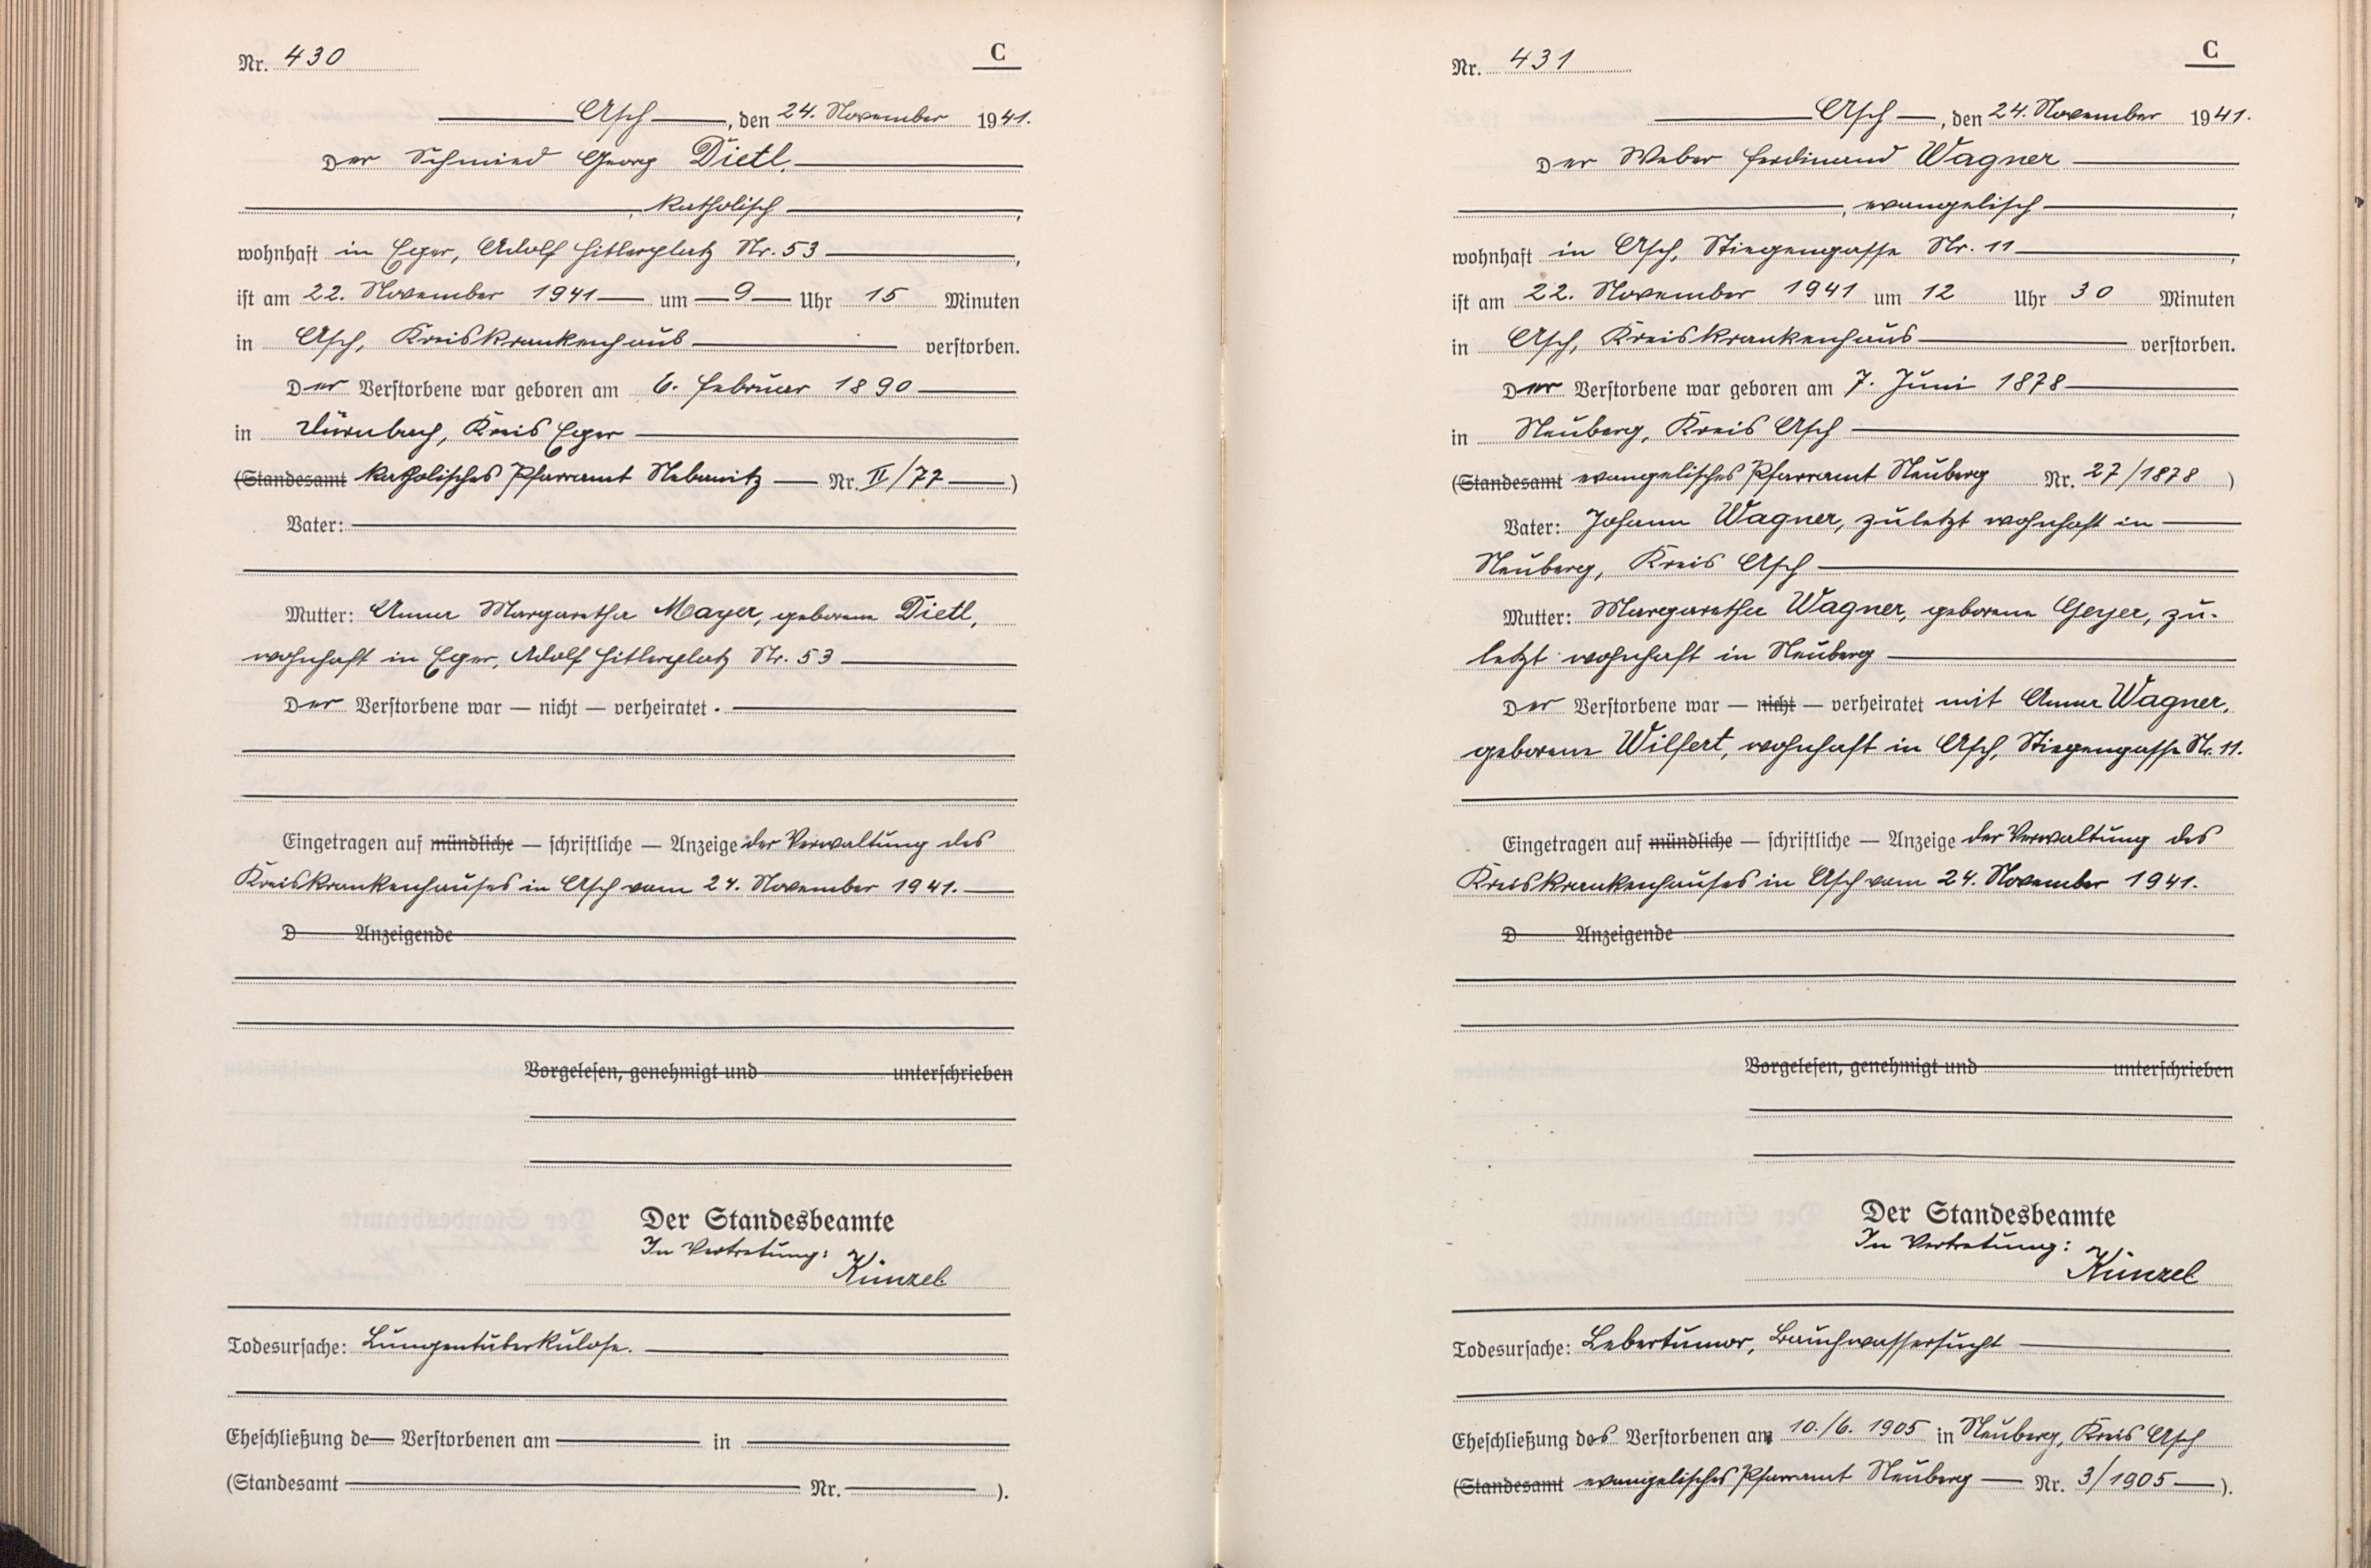 Nr. 430
C
Asch, den 24. November 1941.
Der Schmied Georg Dietl,
, katholisch,
wohnhaft in Eger, Adolf Hitlerplatz Nr. 53,
ist am 22. November 1941 um 9 Uhr 15 Minuten
in Asch, Kreiskrankenhaus verstorben.
Der Verstorbene war geboren am 6. Februar 1890
in Dürnbach, Kreis Eger
(Standesamt katholisches Pfarramt Nebanitz Nr. II/77)
Vater:
Mutter: Anna Margaretha Mayer, geborene Dietl,
wohnhaft in Eger, Adolf Hitlerplatz Nr. 53
Der Verstorbene war — nicht — verheiratet.
Eingetragen auf mündliche — schriftliche — Anzeige der Verwaltung des
Kreiskrankenhauses in Asch vom 24. November 1941.
D Anzeigende
Vorgelesen, genehmigt und unterschrieben
Der Standesbeamte
In Vertretung:
Künzel
Todesursache: Lungentüberkulose.
Eheschließung de Verstorbenen am in
(Standesamt Nr. ).
Nr. 431
C
Asch, den 24. November 1941.
Der Weber Ferdinand Wagner
, evangelisch,
wohnhaft in Asch, Stiegengasse Nr. 11,
ist am 22. November 1941 um 12 Uhr 30 Minuten
in Asch, Kreiskrankenhaus verstorben.
Der Verstorbene war geboren am 7. Juni 1878
in Neuberg, Kreis Asch
(Standesamt evangelisches Pfarramt Neuberg Nr. 27/1878)
Vater: Johann Wagner, zuletzt wohnhaft in
Neuberg, Kreis Asch
Mutter: Margaretha Wagner, geborene Geyer, zu-
letzt wohnhaft in Neuberg
Der Verstorbene war — nicht — verheiratet mit Anna Wagner,
geborene Wilfert, wohnhaft in Asch, Stiegengasse Nr. 11.
Eingetragen auf mündliche — schriftliche — Anzeige der Verwaltung des
Kreiskrankenhauses in Asch vom 24. November 1941.
D Anzeigende
Vorgelesen, genehmigt und unterschrieben
Der Standesbeamte
In Vertretung:
Künzel
Todesursache: Lebertumor, Bauchwassersucht
Eheschließung des Verstorbenen am 10./6. 1905 in Neuberg, Kreis Asch
(Standesamt evangelisches Pfarramt Neuberg Nr. 3/1905).